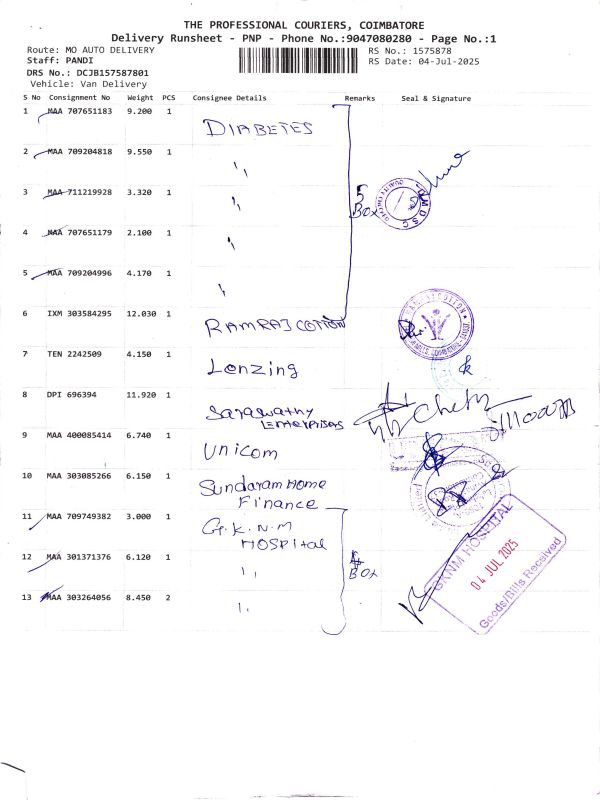 THE PROFESSIONAL COURIERS, COIMBATORE
Delivery Runsheet - PNP - Phone No.:9047080280 - Page No.:1
Route: MO AUTO DELIVERY
RS No.: 1575878
Staff: PANDI
RS Date: 04-Jul-2025
DRS No.: DCJB157587801
Vehicle: Van Delivery
S No Consignment No Weight PCS Consignee Details Remarks Seal & Signature
1 MAA 707651183 9.200 1
DIABETES
2 MAA 709204818 9.550 1
"
3 MAA 711219928 3.320 1
"
5
Box
4 MAA 707651179 2.100 1
"
5 MAA 709204996 4.170 1
"
6 IXM 303584295 12.030 1
RAMRAJ COTTON
7 TEN 2242509 4.150 1
Lenzing
8 DPI 696394 11.920 1
Saraswathy
Enterprises
9 MAA 400085414 6.740 1
Unicom
10 MAA 303085266 6.150 1
Sundaram Home
Finance
11 MAA 709749382 3.000 1
G.K.N.M
HOSPital
12 MAA 301371376 6.120 1
"
4
Box
13 MAA 303264056 8.450 2
"
GKNM HOSPITAL
04 JUL 2025
Goods/Bills Received